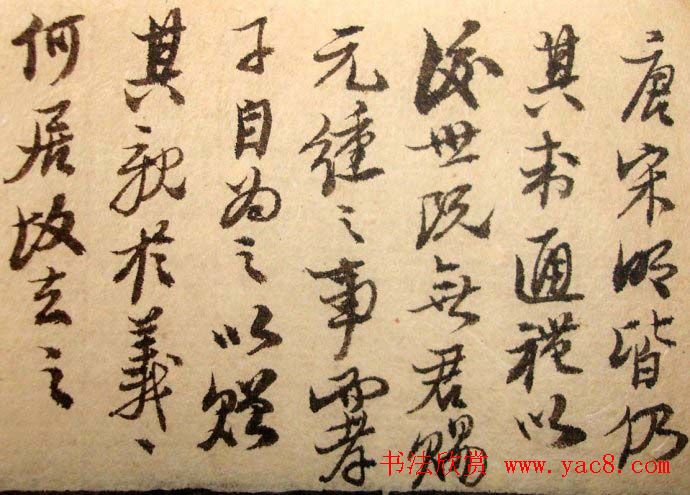 唐宋明皆仍
其制通禮以
後世既無君賜
元纁之事而孝
子自為之以贈
其親於義
何居故去之
书法欣赏 www.yac8.com